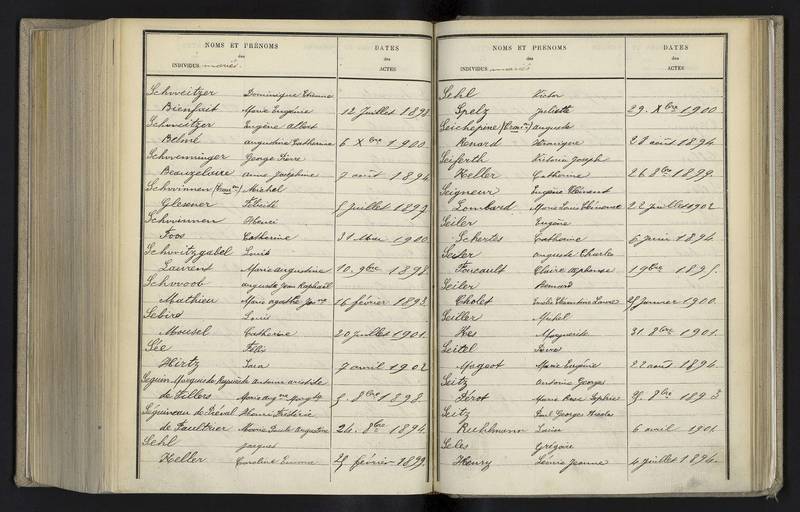 NOMS ET PRÉNOMS
des
INDIVIDUS mariés.
DATES
des
ACTES
Schweitzer Dominique Etienne
Bienfait Marie Eugénie 12 Juillet 1898
Schweitzer Eugène Albert
Belmé Augustine Catherine 6 Xbre 1900.
Schwenninger George Pierre
Beauzelaire Anne Joséphine 7 août 1894
Schwinnen Michel
Glesener 5 Juillet 1897.
Schwinnen Henri
Foos Catherine 31 Mai 1900.
Schwitzgabel Louis
Laurent Marie Augustine 10. 9bre 1898.
Schwoob Auguste Jean Raphaël
Mathieu Marie Agathe 16 février 1893.
Sebire Louis
Mousel Catherine 20 juillet 1901.
Sée Félix
Hirtz Sara 7 avril 1902
Seguin Marquis de Antoine Aristide
de Villers Marie 5. 8bre 1898.
Séguineau de Préval Henri Frédéric
de Faultrier Marie Paule Augustine 24. 1894
Sehl Jacques
Keller Caroline Emma 25 février 1899.
NOMS ET PRÉNOMS
des
INDIVIDUS mariés
DATES
des
ACTES
Sehl Victor
Spelz Juliette 29. Xbre 1900.
Seichepine Auguste
Renard Véronique 28 août 1894
Seiferth Victorin Joseph
Keller Catherine 26 8bre 1899.
Seigneur Eugène Clément
Lombard Marie Louise Clémence 22 juillet 1902
Seiler Eugène
Schertes Catherine 6 juin 1894
Seiler Auguste Charles
Foucault Claire Alphonse 1895.
Seiler Bernard
Cholet Emélie Clémentine Louise 25 janvier 1900.
Seiller Michel
Hes Marguerite 31. 8bre 1901.
Seitel Pierre
Mageot Marie Eugénie 22 août 1894
Seitz Antoine Georges
Férot Marie Rose Sophie 8bre 1893
Seitz Paul Georges Nicolas
Ruhlmann Louise 6 avril 1901
Seles Grégoire
Henry Léonie Jeanne 4 juillet 1894.